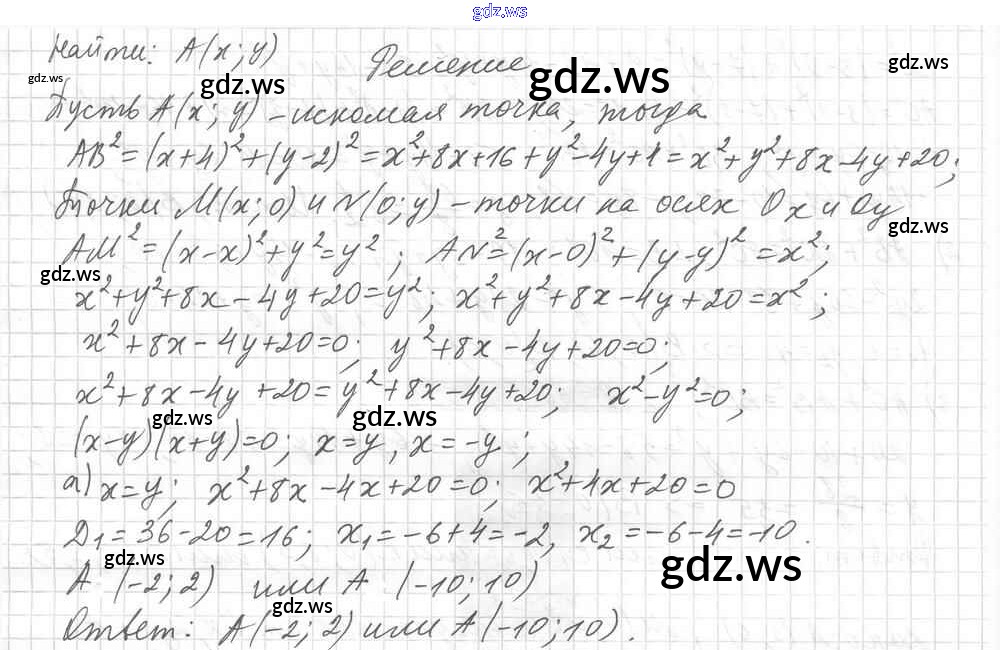 gdz.ws
Найти: A(x; y)
Решение
gdz.ws
gdz.ws
gdz.ws
gdz.ws
Пусть A(x; y) – искомая точка, тогда
AB² = (x+4)² + (y-2)² = x²+8x+16+y²-4y+1 = x²+y²+8x-4y+20;
Точки M(x; 0) и N(0; y) – точки на осях Ox и Oy
gdz.ws
AM² = (x-x)² + y² = y²; AN² = (x-0)² + (y-y)² = x²;
gdz.ws
x²+y²+8x-4y+20=y²; x²+y²+8x-4y+20=x²;
x²+8x-4y+20=0; y²+8x-4y+20=0;
x²+8x-4y+20=y²+8x-4y+20; x²-y²=0;
gdz.ws
gdz.ws
(x-y)(x+y)=0; x=y, x=-y;
а) x=y; x²+8x-4x+20=0; x²+4x+20=0
D₁=36-20=16; x₁=-6+4=-2, x₂=-6-4=-10.
gdz.ws
gdz.ws
A (-2; 2) или A (-10; 10)
gdz.ws
Ответ: A(-2; 2) или A(-10; 10).